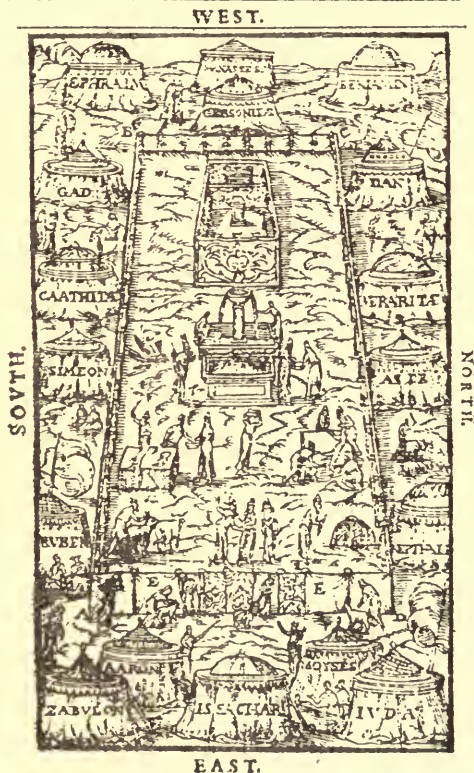 WEST.
EPHRAIM
MANASSES
BENIAMIN
GERSONITÆ
B
C
GAD
DAN
CAATHITÆ
MERARITÆ
SIMEON
ASER
SOVTH.
NORTH.
RVBEN
NEPHTALI
E
E
D
AARON
MOYSES
ZABVLON
ISSCHAR
IVDA
EAST.